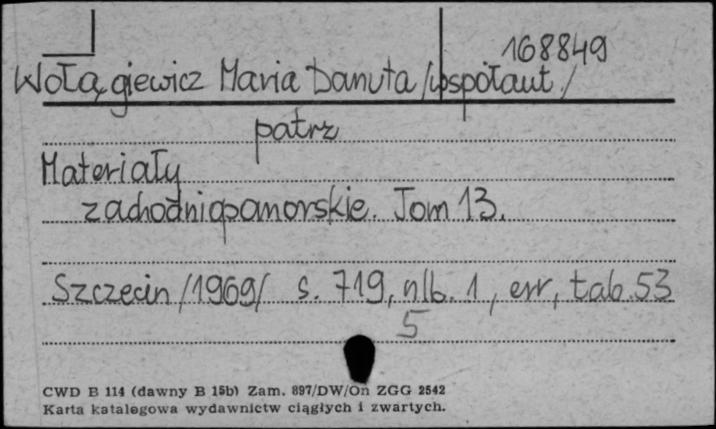 168849
Wołągiewicz Maria Danuta /współaut./
patrz
Materiały
zachodniopomorskie. Tom 13.
Szczecin /1969/ s. 719, nlb. 1, err, tab. 53
5
CWD B 114 (dawny B 15b) Zam. 897/DW/On ZGG 2542
Karta katalogowa wydawnictw ciągłych i zwartych.